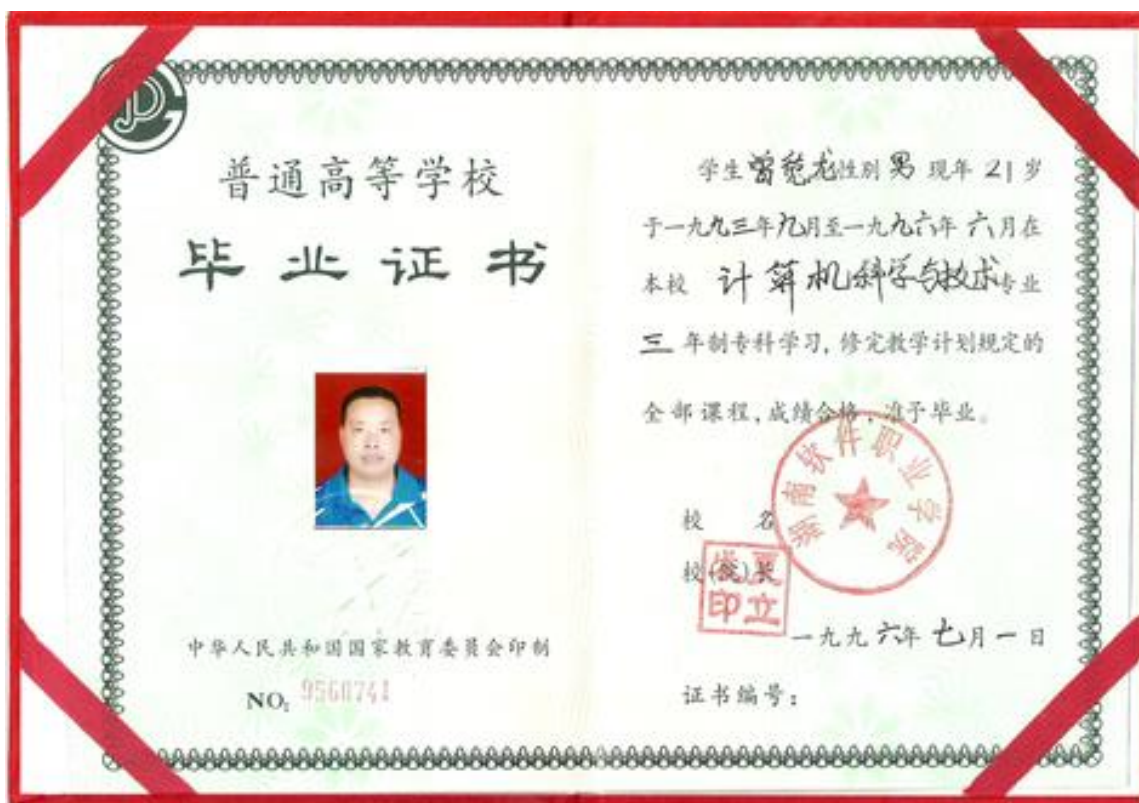 普通高等学校
毕业证书
中华人民共和国国家教育委员会印制
NO: 9560741
学生曾 龙性别 男 现年 21 岁
于一九九三年九月至一九九六年 六月在
本校 计算机科学与技术专业
三 年制专科学习,修完教学计划规定的
全部课程,成绩合格,准予毕业。
湖南软件职业学院
校 名
校(院)长
夏立 印
一九九六年 七月一日
证书编号: